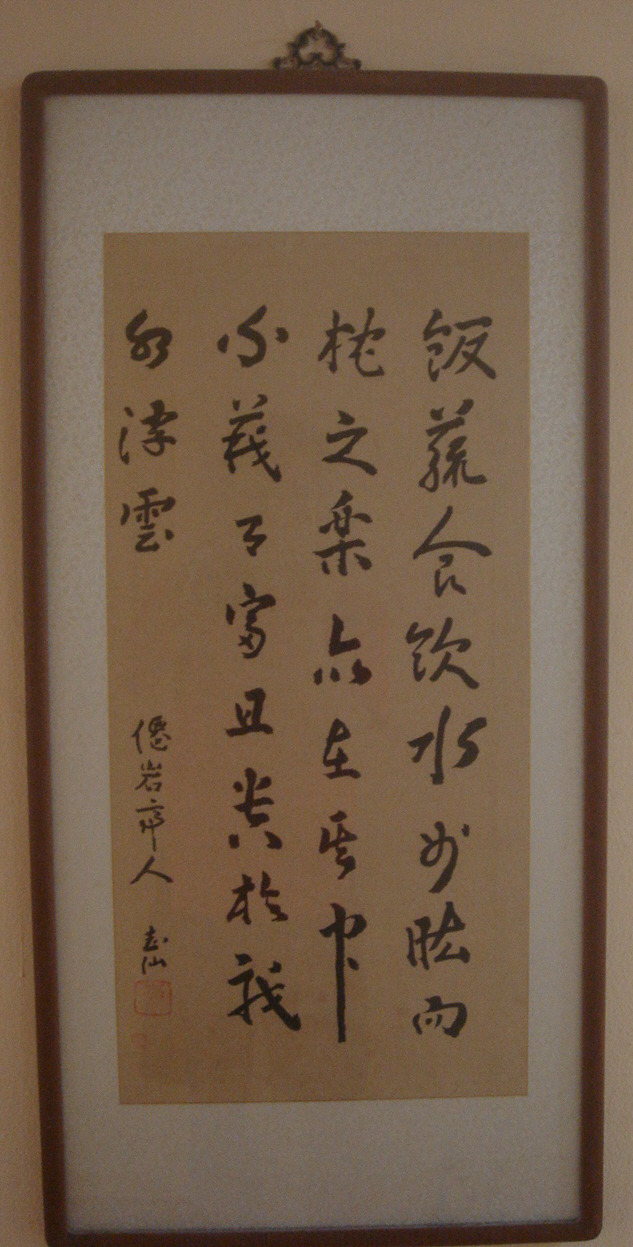 飯蔬食飲水曲肱而
枕之樂亦在其中
不義而富且貴於我
如浮雲
僊岩 人